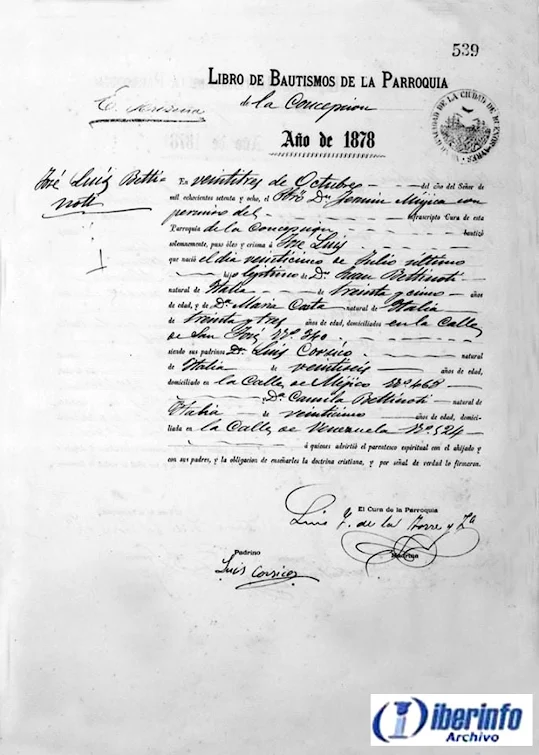 539
LIBRO DE BAUTISMOS DE LA PARROQUIA
de la Concepcion
Año de 1878
José Luis Betti-
noti
En veintitres de Octubre del año del Señor de
mil echocientos setenta y ocho, el Pbro Dn Fermin Mujica con
permiso del infrascripto Cura de esta
Parroquia de la Concepcion bautizó
solemnemente, puso óleo y crisma á José Luis
que nació el dia veinticinco de Julio último
hijo legitimo de Dn Juan Bettinoti
natural de Italia de treinta y cinco años
de edad, y de Da Maria Costa natural de Italia
de treinta y tres años de edad, domiciliados en la Calle
de San José No 340
siendo sus padrinos Dn Luis Corsico natural
de Italia de veintiseis años de edad,
domiciliado en la Calle de Méjico No 463
y Da Camila Bettinoti natural de
Italia de veinticinco años de edad, domici-
liada en la Calle de Venezuela No 524
á quienes advirtió el parentesco espiritual con el ahijado y
con sus padres, y la obligacion de enseñarles la doctrina cristiana, y por señal de verdad lo firmaron.
El Cura de la Parroquia
Luis de la Torre y Za
Padrino
Madrina
Luis Corsico
iberinfo
Archivo